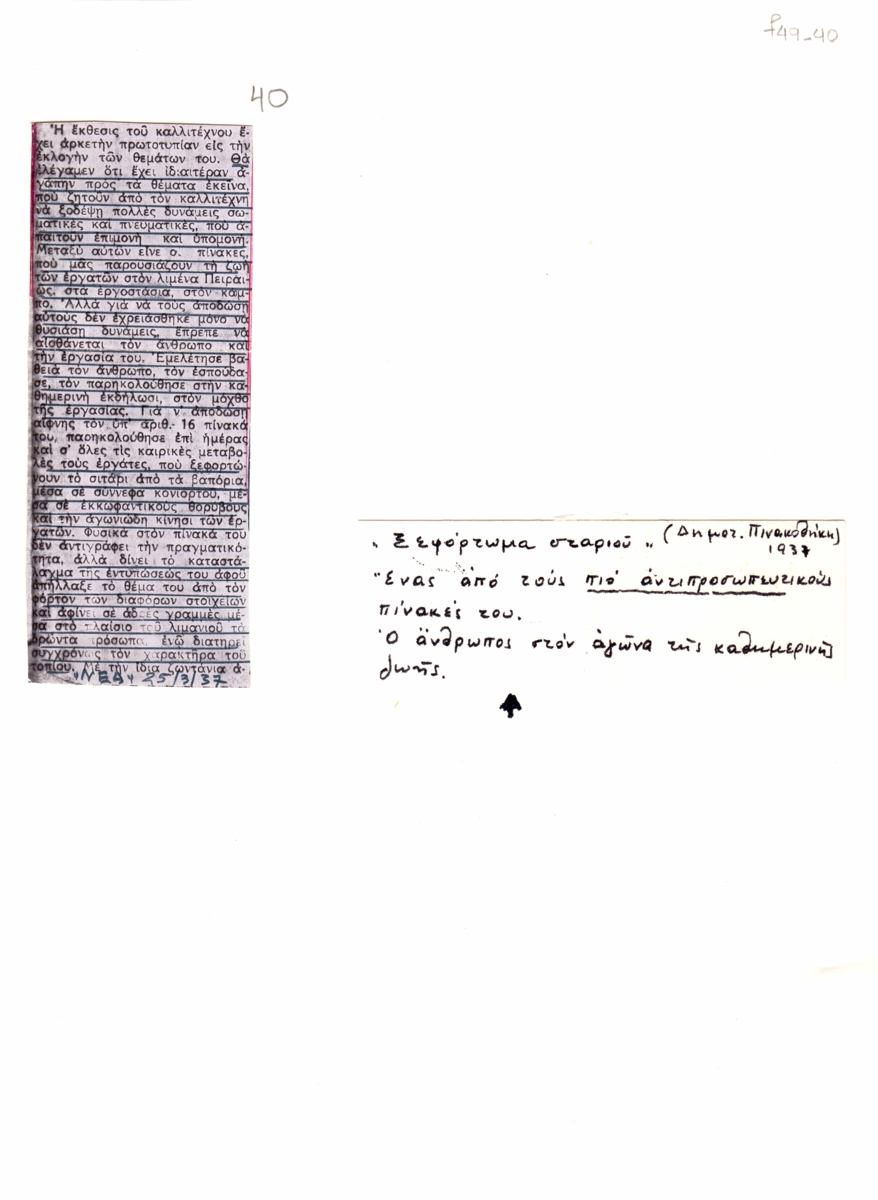 f49-40
40
Ἡ ἔκθεσις τοῦ καλλιτέχνου ἔ-
χει ἀρκετὴν πρωτοτυπίαν εἰς τὴν
ἐκλογὴν τῶν θεμάτων του. Θὰ
ἐλέγαμεν ὅτι ἔχει ἰδιαιτέραν ἀ-
γάπην πρὸς τὰ θέματα ἐκεῖνα,
ποὺ ζητοῦν ἀπὸ τὸν καλλιτέχνη
νὰ ξοδέψη πολλὲς δυνάμεις σω-
ματικὲς καὶ πνευματικές, ποὺ ἀ-
παιτοῦν ἐπιμονὴ καὶ ὑπομονή.
Μεταξὺ αὐτῶν εἶνε οἱ πίνακες,
ποὺ μᾶς παρουσιάζουν τὴ ζωὴ
τῶν ἐργατῶν στὸν λιμένα Πειραι-
ῶς, στὰ ἐργοστάσια, στὸν κάμ-
πο. Ἀλλὰ γιὰ νὰ τοὺς ἀποδώση
αὐτοὺς δὲν ἐχρειάσθηκε μόνο νὰ
θυσιάση δυνάμεις, ἔπρεπε νὰ
αἰσθάνεται τὸν ἄνθρωπο καὶ
τὴν ἐργασία του. Ἐμελέτησε βα-
θειὰ τὸν ἄνθρωπο, τὸν ἐσπούδα-
σε, τὸν παρηκολούθησε στὴν κα-
θημερινὴ ἐκδήλωσι, στὸν μόχθο
τῆς ἐργασίας. Γιὰ ν' ἀποδώση
αἴφνης τὸν ὑπ' ἀριθ. 16 πίνακά
του, παρηκολούθησε ἐπὶ ἡμέρας
καὶ σ' ὅλες τὶς καιρικὲς μεταβο-
λὲς τοὺς ἐργάτες, ποὺ ξεφορτώ-
νουν τὸ σιτάρι ἀπὸ τὰ βαπόρια,
μέσα σὲ σύννεφα κονιορτοῦ, μέ-
σα σὲ ἐκκωφαντικοὺς θορύβους
καὶ τὴν ἀγωνιώδη κίνησι τῶν ἐρ-
γατῶν. Φυσικὰ στὸν πίνακά του
δὲν ἀντιγράφει τὴν πραγματικό-
τητα, ἀλλὰ δίνει τὸ καταστά-
λαγμα τῆς ἐντυπώσεώς του ἀφοῦ
ἀπήλλαξε τὸ θέμα του ἀπὸ τὸν
φόρτον τῶν διαφόρων στοιχείων
καὶ ἀφίνει σὲ ἁδρὲς γραμμὲς μέ-
σα στὸ πλαίσιο τοῦ λιμανιοῦ τὰ
δρῶντα πρόσωπα, ἐνῶ διατηρεῖ
συγχρόνως τὸν χαρακτῆρα τοῦ
τοπίου. Μὲ τὴν ἴδια ζωντάνια ἀ-
"ΝΕΑ" 25/3/37
"Ξεφόρτωμα σταριοῦ" (Δημοτ. Πινακοθήκη)
1937
Ἕνας ἀπὸ τοὺς πιὸ ἀντιπροσωπευτικοὺς
πίνακές του.
Ὁ ἄνθρωπος στὸν ἀγῶνα τῆς καθημερινῆς
ζωῆς.